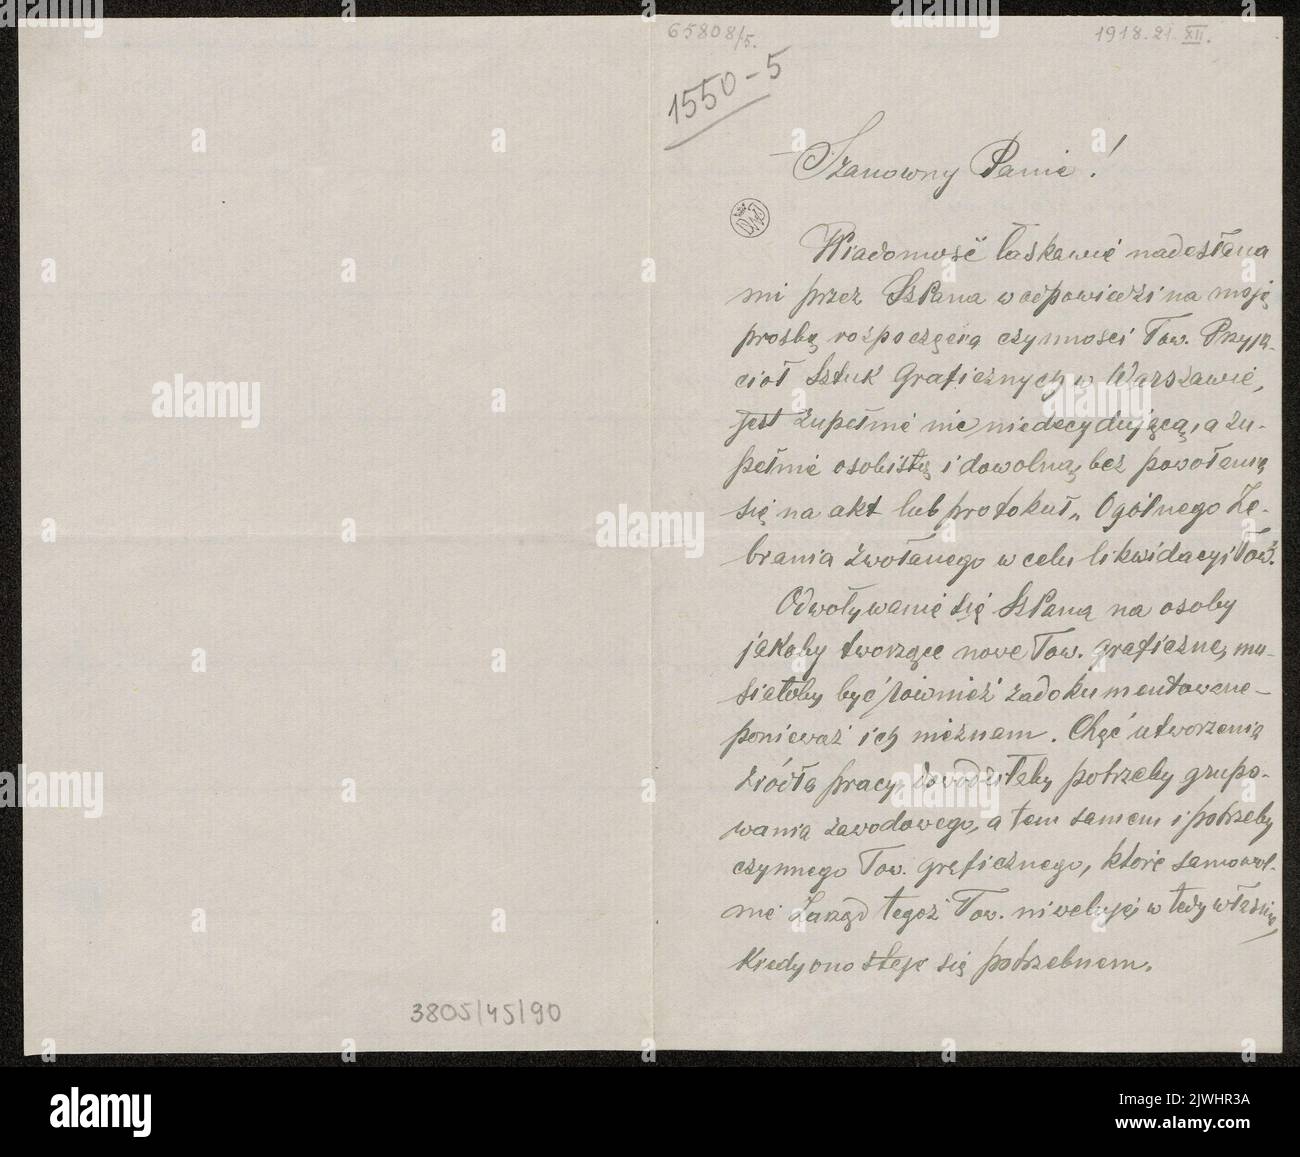 65808/5.
1918.21.XII.
1550-5
Szanowny Panie!
Wiadomość łaskawie nadesłana
mi przez SzPana w odpowiedzi na moją
prośbę rozpoczęcia czynności Tow. Przyja-
ciół Sztuk Graficznych w Warszawie,
jest zupełnie nic niedecydującą, a zu-
pełnie osobistą i dowolną, bez powołania
się na akt lub protokuł „Ogólnego Ze-
brania zwołanego w celu likwidacyi Tow."
Odwoływanie się SzPana na osoby
jakoby tworzące nowe Tow. graficzne, mu-
siałoby być również zadokumentowane –
ponieważ ich nieznam. Chęć utworzenia
źródła pracy, dowodziłaby potrzeby grupo-
wania zawodowego, a tem samem i potrzeby
czynnego Tow. graficznego, które samowol-
nie Zarząd tegoż Tow. niweluje, wtedy właśnie,
kiedy ono staje się potrzebnem.
3805/45/90
alamy
Image ID: 2JWHR3A
www.alamy.com